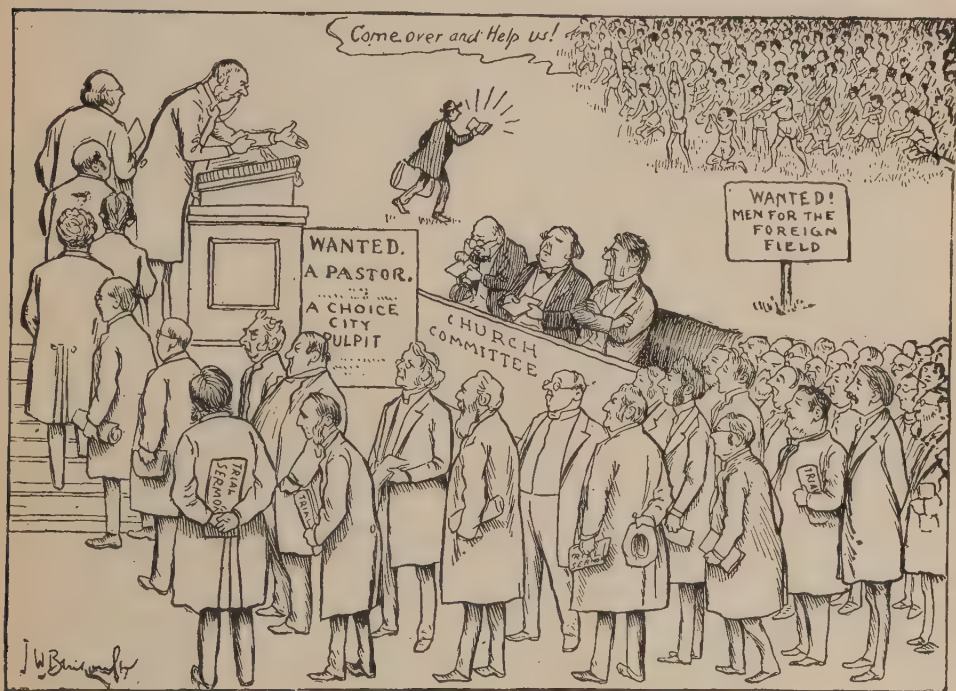 Come over and Help us!
WANTED!
MEN FOR THE
FOREIGN
FIELD
WANTED.
A PASTOR.
A CHOICE
CITY
PULPIT
CHURCH
COMMITTEE
TRIAL
SERMON
TRIAL
TRIAL
SERMO
TRIAL